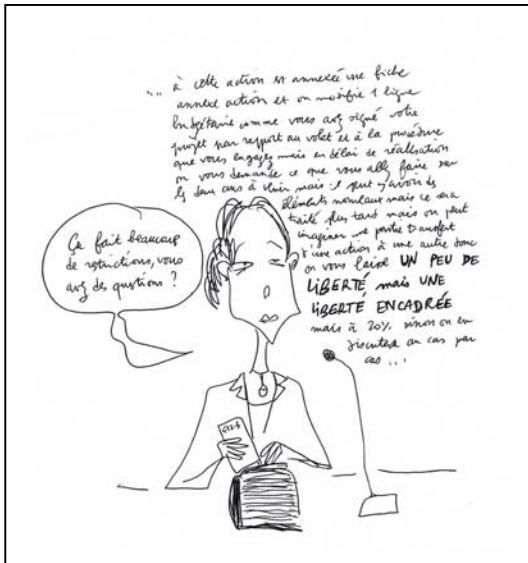 ... à cette action est annexée une fiche
annexe action et on modifie 1 ligne
budgétaire comme vous avez signé votre
projet par rapport au volet et à la procédure
que vous engagez mais en délai de réalisation
on vous demande ce que vous allez faire sur
les deux ans à venir mais il peut y avoir des
éléments nouveaux mais ce sera
traité plus tard mais on peut
imaginer une portée transfert
d'une action à une autre donc
on vous laisse UN PEU DE
LIBERTÉ mais UNE
LIBERTÉ ENCADRÉE
mais à 20% sinon on en
discutera au cas par
cas ...
Ça fait beaucoup
de restrictions, vous
avez des questions ?